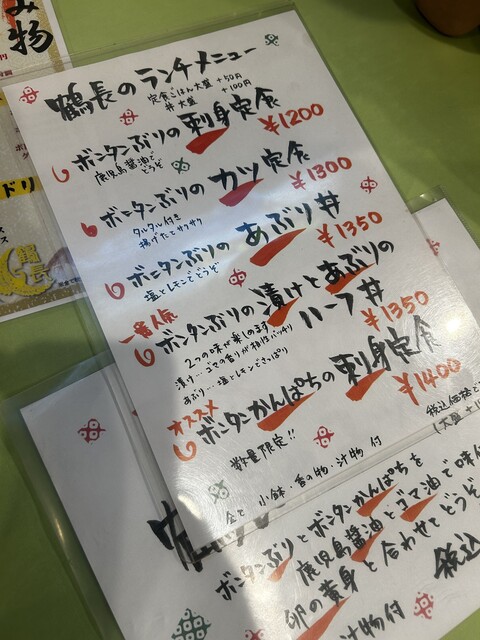 物
鶴長のランチメニュー
定食ごはん大盛 +50円
丼大盛 +100円
ボンタンぶりの刺身定食
鹿児島醤油で
どうぞ
¥1200
ボンタンぶりの カツ定食
タルタル付き
揚げたてサクサク
¥1300
ボンタンぶりの あぶり丼
塩とレモンでどうぞ
¥1350
一番人気
ボンタンぶりの漬けとあぶりの
ハーフ丼
2つの味が楽しめます
漬け…ゴマの香りが相性バッチリ
あぶり…塩とレモンでさっぱり
¥1350
オススメ
ボンタンかんぱちの刺身定食
数量限定!!
¥1400
税込価格
小鉢・香の物・汁物 付
ドリ
鶴長
ボンタンぶりとボンタンかんぱちを
鹿児島醤油とゴマ油で味
卵の黄身と合わせてどうぞ
税込
汁物付